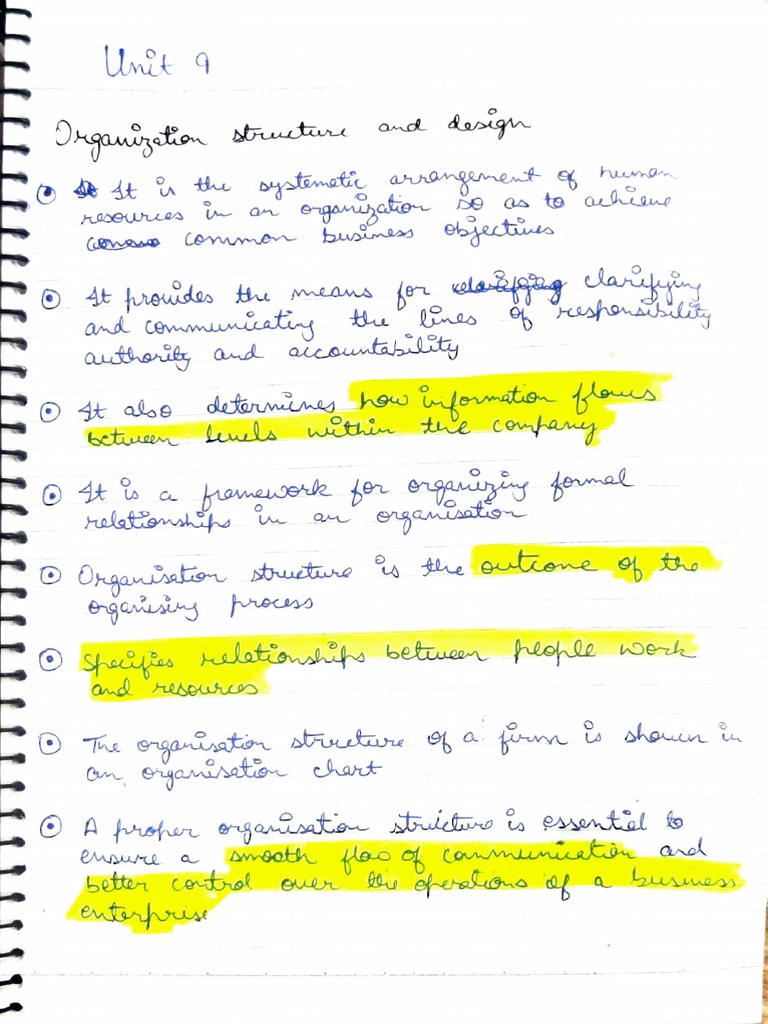 Unit 9
Organization structure and design
It is the systematic arrangement of human
resources in an organization so as to achieve
common business objectives
It provides the means for clarifying
and communicating the lines of responsibility
authority and accountability
It also determines how information flows
between levels within the company
It is a framework for organizing formal
relationships in an organisation
Organisation structure is the outcome of the
organising process
Specifies relationships between people work
and resources
The organisation structure of a firm is shown in
an organisation chart
A proper organisation structure is essential to
ensure a smooth flow of communication and
better control over the operations of a business
enterprise